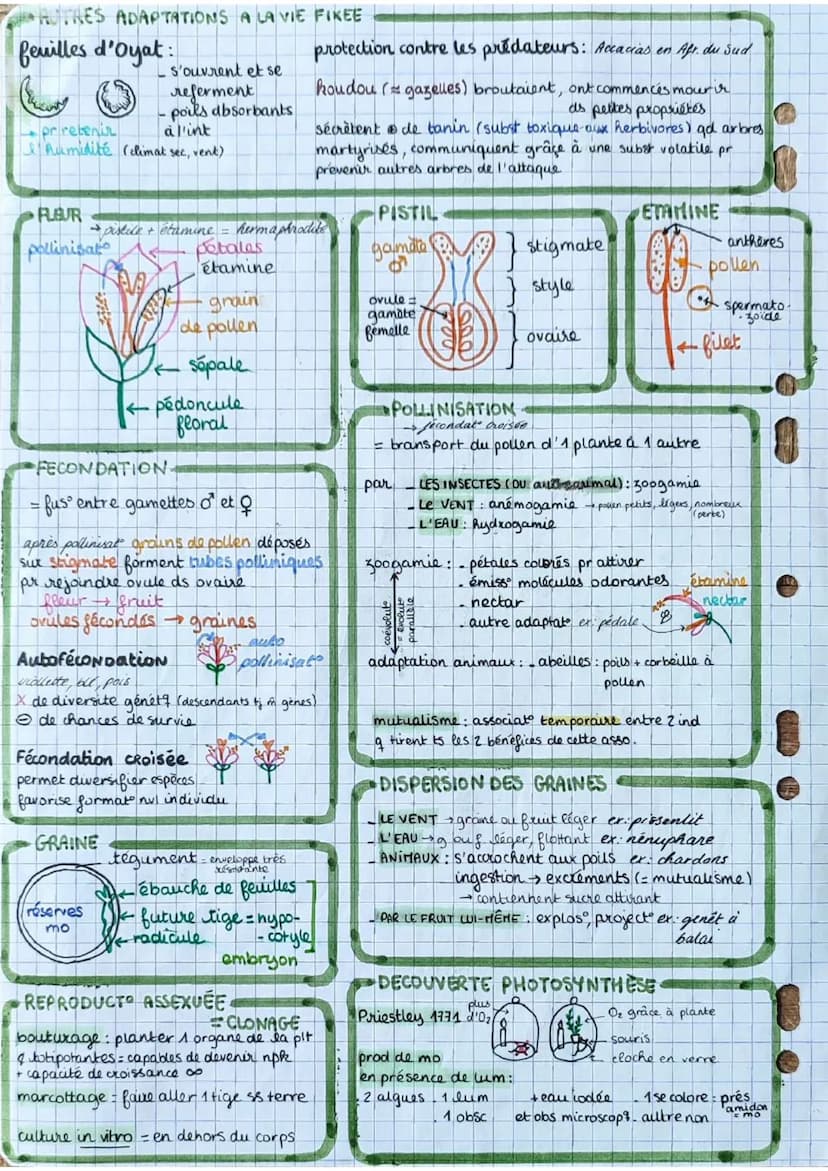 AUTRES ADAPTATIONS A LA VIE FIXEE
feuilles d'Oyat :
- s'ouvrent et se
referment
- poils absorbants
à l'int
→ pr retenir
l'humidité (climat sec, vent)
protection contre les prédateurs : Accacias en Afr. du Sud
koudou (≈ gazelles) broutaient, ont commencés mourir
ds petites propriétés
sécrètent ⊕ de tanin (subst toxique aux herbivores) qd arbres
martyrisés, communiquent grâce à une subst volatile pr
prévenir autres arbres de l'attaque
FLEUR
→ pistile + étamine = hermaphrodite
pollinisat°
pétales
étamine
grain
de pollen
sépale
pédoncule
floral
PISTIL
gamète
♂
ovule =
gamète
femelle
stigmate
style
ovaire
ETAMINE
anthères
pollen
spermato-
zoïde
filet
FECONDATION
= fus° entre gamettes ♂ et ♀
après pollinisat° grains de pollen déposés
sur stigmate forment tubes polliniques
pr rejoindre ovule ds ovaire
fleur → fruit
ovules fécondés → graines
Autofécondation
auto
pollinisat°
violette, blé, pois
X de diversité génétq (descendants tj m̂ gènes)
⊖ de chances de survie
Fécondation croisée
permet diversifier espèces
favorise format° nvl individu
POLLINISATION
→ fécondat° croisée
= transport du pollen d'1 plante à 1 autre
par - LES INSECTES (OU animal) : zoogamie
- LE VENT : anémogamie → pollen petits, légers, nombreux
(perte)
- L'EAU : hydrogamie
zoogamie : - pétales colorés pr attirer
- émiss° molécules odorantes
- nectar
- autre adaptat° ex : pédale
étamine
nectar
coévolut°
= évolut°
parallèle
adaptation animaux : - abeilles : poils + corbeille à
pollen
mutualisme : associat° temporaire entre 2 ind
q tirent ts les 2 bénéfices de cette asso.
GRAINE
tégument = enveloppe très
résistante
réserves
mo
ébauche de feuilles
future tige = hypo-
-cotyle
radicule
embryon
DISPERSION DES GRAINES
- LE VENT → graine ou fruit léger ex : pissenlit
- L'EAU → g ou f léger, flottant ex : nénuphare
- ANIMAUX : s'accrochent aux poils ex : chardons
ingestion → excréments (= mutualisme)
→ contiennent sucre attirant
- PAR LE FRUIT LUI-MÊME : explos°, project° ex : genêt à
balai
REPRODUCT° ASSEXUÉE
= CLONAGE
bouturage : planter 1 organe de la plt
q totipotantes = capables de devenir npk
+ capacité de croissance ∞
marcottage : faire aller 1 tige ss terre
culture in vitro = en dehors du corps
DECOUVERTE PHOTOSYNTHÈSE
Priestley 1771
plus
d'O₂
O₂ grâce à plante
souris
cloche en verre
prod de mo
en présence de lum :
2 algues . 1 lum + eau iodée - 1 se colore : prés
amidon
= mo
. 1 obsc et obs microscopq . autre non